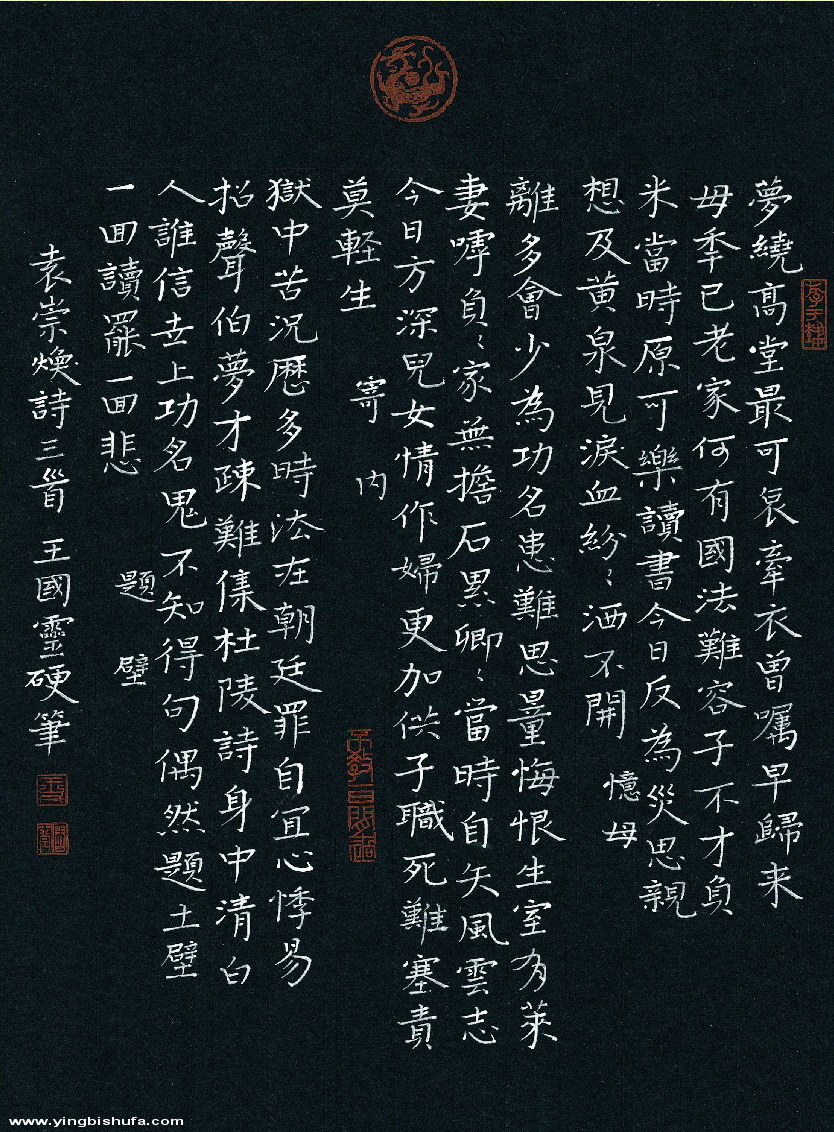 夢繞高堂最可哀牽衣曾囑早歸来
母年已老家何有國法難容子不才負
米當時原可樂讀書今日反為災思親
想及黄泉見淚血紛〻洒不開
憶母
離多會少為功名患難思量悔恨生室有萊
妻嘑負〻家無擔石累卿〻當時自矢風雲志
今日方深兒女情作婦更加供子職死難塞責
莫軽生
寄内
獄中苦况歷多時法在朝廷罪自宜心悸易
招聲伯夢才疎難集杜陵詩身中清白
人誰信世上功名鬼不知得句偶然題土壁
一回讀罷一回悲
題壁
袁崇煥詩三首 王國靈硬筆
www.yingbishufa.com